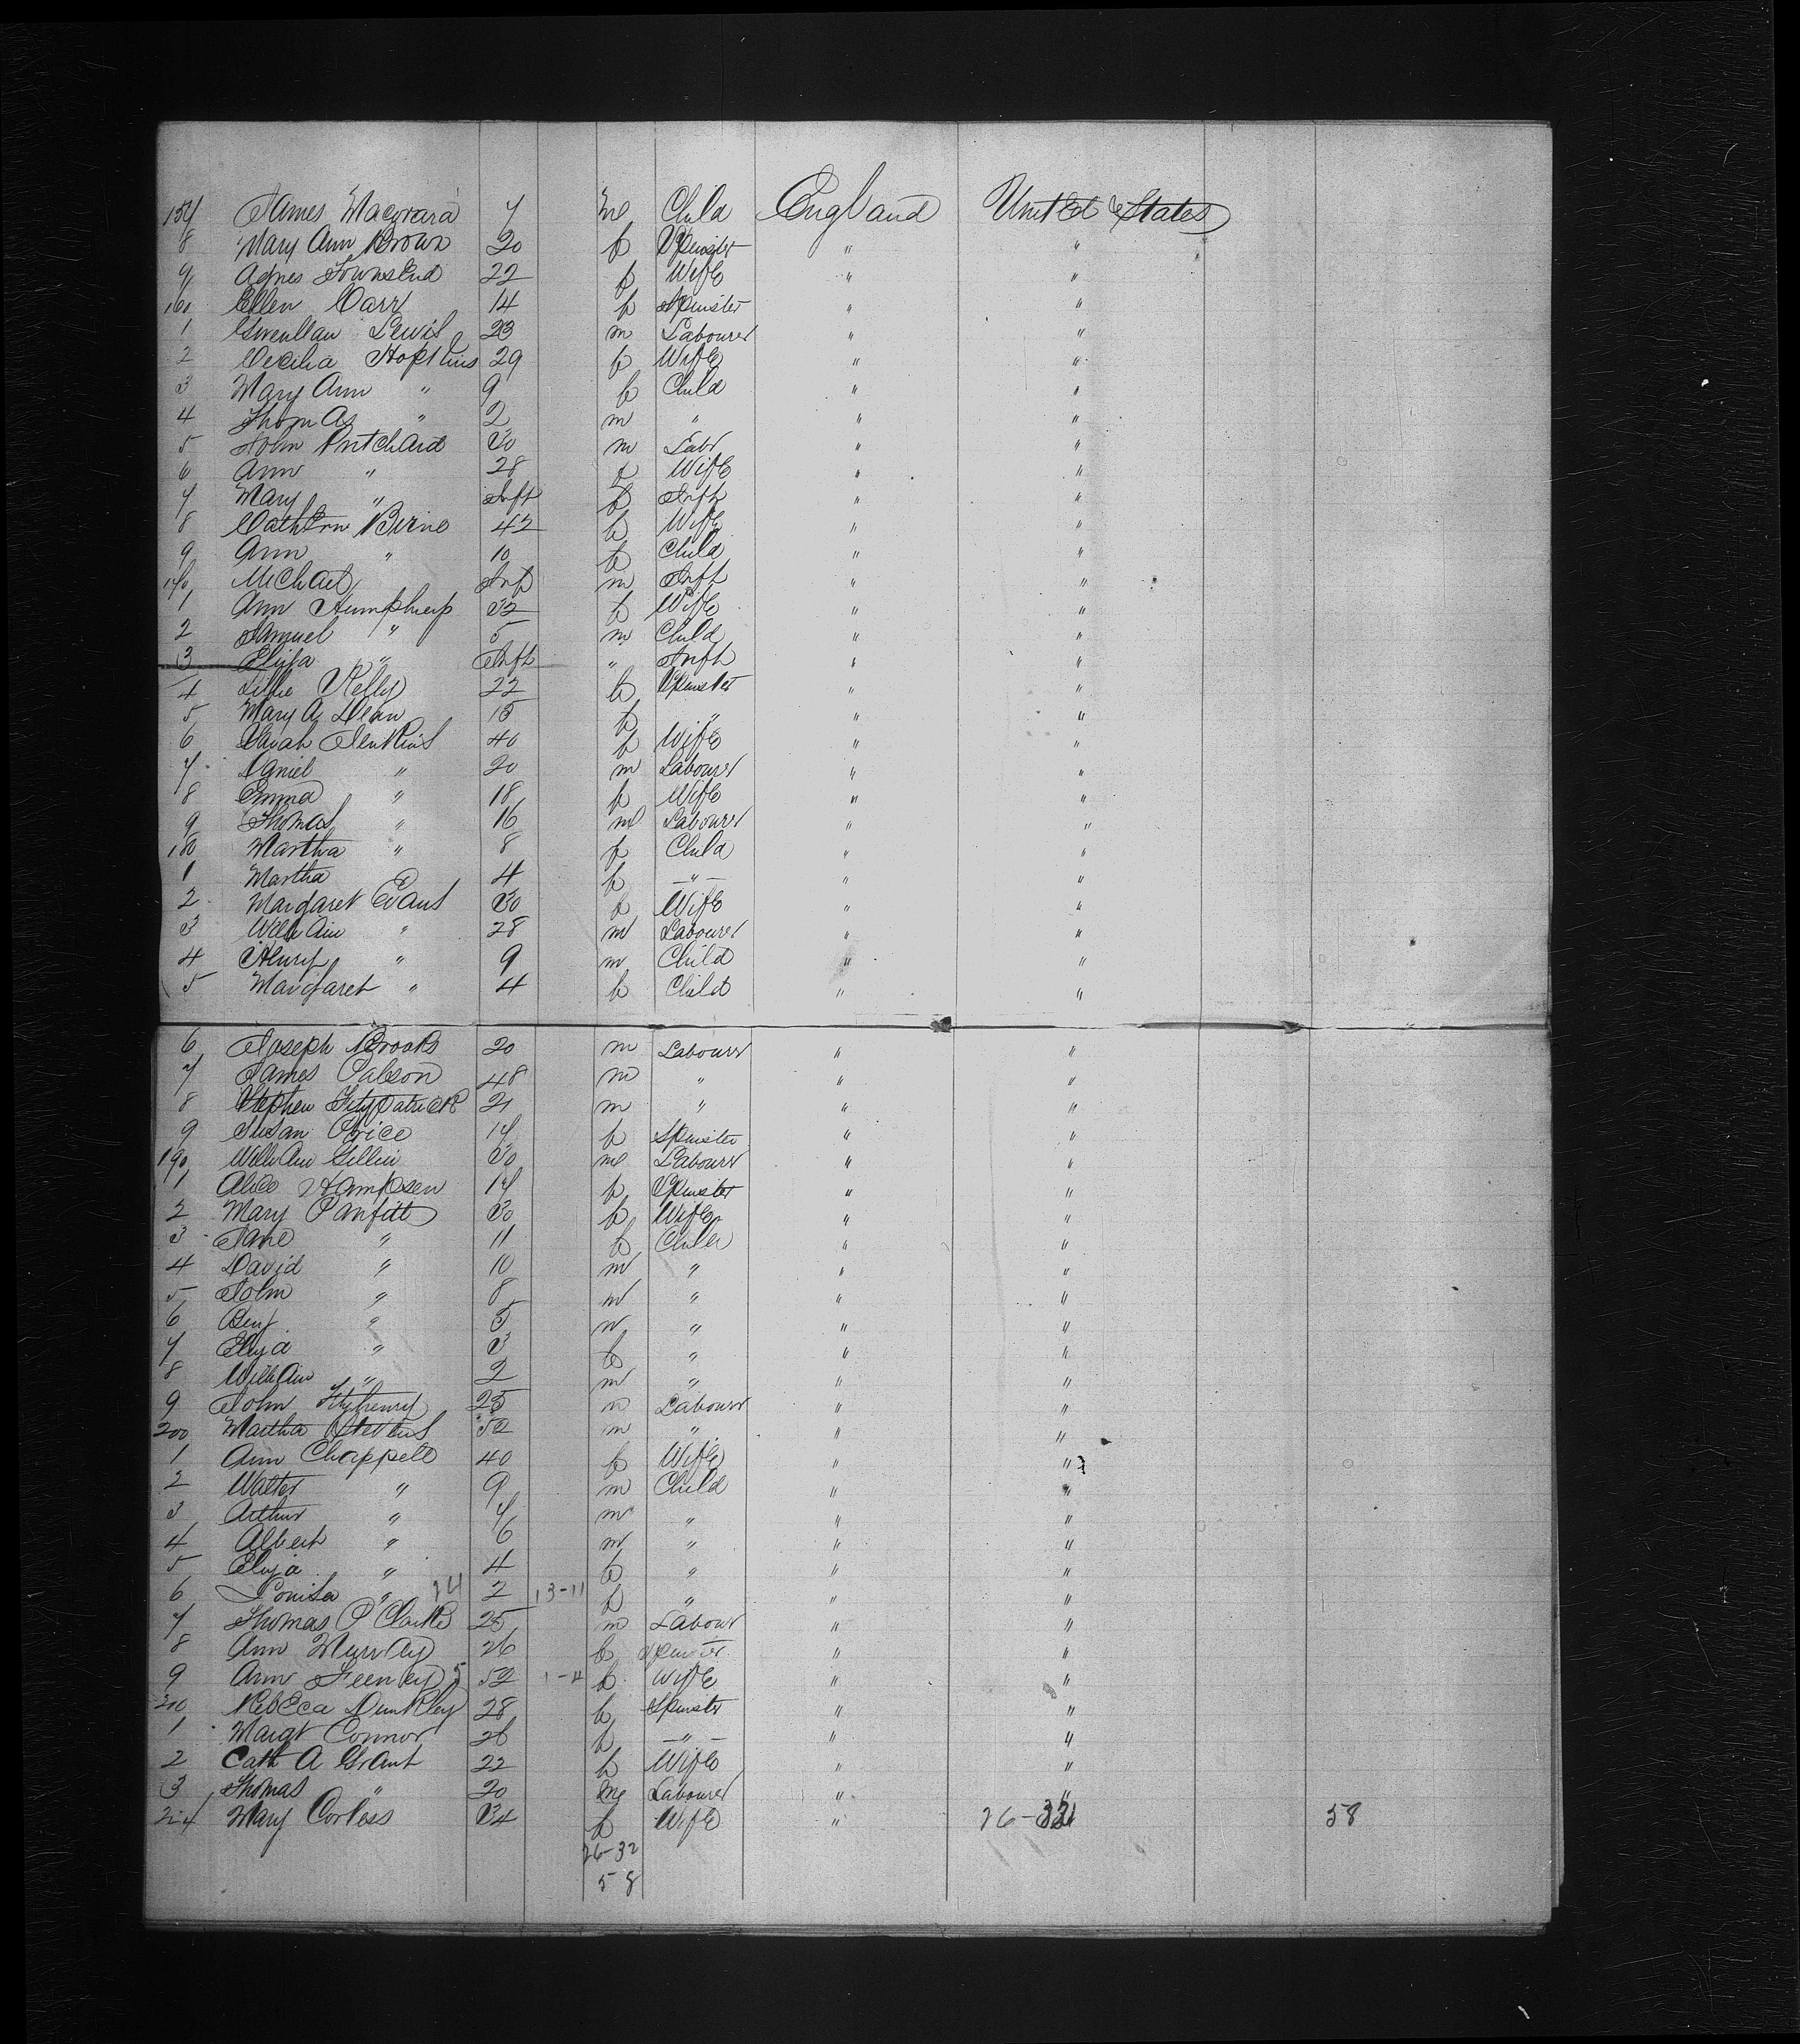 157 James Macgrara 7 m Child England United States
8 Mary Ann Brown 20 f Spinster " "
9 Agnes Townsend 22 f Wife " "
160 Ellen Carr 14 f Spinster " "
1 Gwenllian Lewis 23 m Labourer " "
2 Cecilia Hopkins 29 f Wife " "
3 Mary Ann " 9 f Child " "
4 Thomas " 2 m " " "
5 John Pritchard 30 m Labr " "
6 Ann " 28 f Wife " "
7 Mary " Inft f Inft " "
8 Cathern Birne 42 f Wife " "
9 Ann " 10 f Child " "
170 Michael " Inf m Inft " "
1 Ann Humphreys 32 f Wife " "
2 Samuel " 5 m Child " "
3 Eliza " Inft " Inft " "
4 Lillie Kelly 22 f Spinster " "
5 Mary A Dean 15 f " " "
6 Sarah Jenkins 40 f Wife " "
7 Daniel " 20 m Labourer " "
8 Emma " 18 f Wife " "
9 Thomas " 16 m Labourer " "
180 Martha " 8 f Child " "
1 Martha 4 f -"- " "
2 Margaret Evans 30 f Wife " "
3 William " 28 m Labourer " "
4 Henry " 9 m Child " "
5 Margaret " 4 f Child " "
6 Joseph Brooks 20 m Labourer " "
7 James Pabson 48 m " " "
8 Stephen Fitzpatrick 21 m " " "
9 Susan Price 17 f Spinster " "
190 William Gillin 30 m Labourer " "
1 Alice Hampsen 17 f Spinster " "
2 Mary Panfitt 30 f Wife " "
3 Jane " 11 f Child " "
4 David " 10 m " " "
5 John " 8 m " " "
6 Benj " 5 m " " "
7 Eliza " 3 f " " "
8 William " 2 m " " "
9 John Fitzhenry 25 m Labourer " "
200 Martha Stevens 50 m " " "
1 Ann Chappell 40 f Wife " "
2 Walter " 9 m Child " "
3 Arthur " 7 m " " "
4 Albert " 6 m " " "
5 Eliza " 4 f " " "
6 Louisa " 24 2 13-11 f " " "
7 Thomas P Clarke 25 m Labour " "
8 Ann Murray 26 f Spinster " "
9 Ann Feenley 5 52 1-4 f Wife " "
210 Rebeca Dunkley 28 f Spinster " "
1 Margt Connor 26 f -"- " "
2 Cath A Grant 22 f Wife " "
3 Thomas " 20 m Labourer " "
214 Mary Corless 34 f Wife " 26-32 58
26-32
58